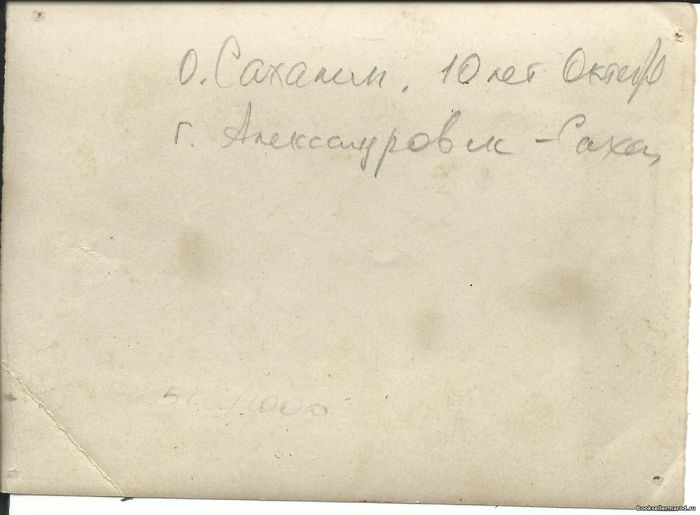 о. Сахалин. 10 лет Октяб
г. Александровск - Саха
bookseller.narod.ru